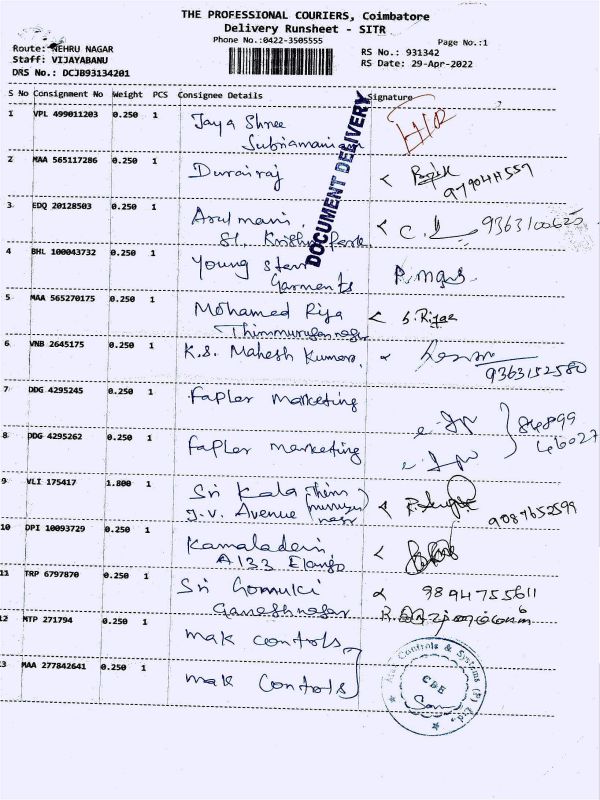 THE PROFESSIONAL COURIERS, Coimbatore
Delivery Runsheet - SITR
Phone No.:0422-3505555
Page No.:1
Route: NEHRU NAGAR
Staff: VIJAYABANU
DRS No.: DCJB93134201
RS No.: 931342
RS Date: 29-Apr-2022
S No Consignment No Weight PCS Consignee Details Signature
1 VPL 499011203 0.250 1 Jaya Shree
Subramaniam
2 MAA 565117286 0.250 1 Durairaj
9790411559
3 EDQ 20128503 0.250 1 Arulmani.
St. Krishna park
9363100620
DOCUMENT DELIVERY
4 BHL 100043732 0.250 1 Young Star
Garments
5 MAA 565270175 0.250 1 Mohamed Riya
Thimmurugan nagar
6 VNB 2645175 0.250 1 K.S. Mahesh Kumar.
9363152580
7 DDG 4295245 0.250 1 Fapler marketing
8 DDG 4295262 0.250 1 Fapler marketing
84899
46027
9 VLI 175417 1.800 1 Sri Kala
J.V. Avenue
9087652599
10 DPI 10093729 0.250 1 Kamaladevi
A133 Elango
11 TRP 6797870 0.250 1 Sri Gomuki
Ganesh nagar
9894755611
12 MTP 271794 0.250 1 mak controls
13 MAA 277842641 0.250 1 mak controls
Mak Controls & Systems (P) Ltd.
CBE